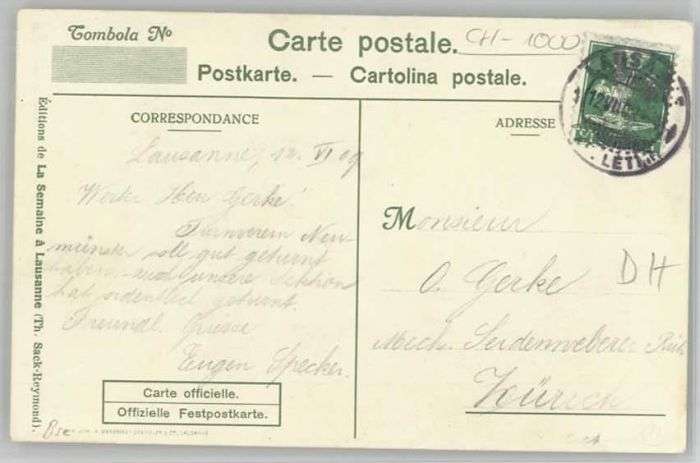 Tombola Nº
Carte postale.
CH-1000
Postkarte. — Cartolina postale.
CORRESPONDANCE
ADRESSE
LETT
Lausanne, 12. VI 09
Werter Herr Gerke!
Turnverein Neu-
münster soll gut geturnt
haben und unsere Sektion
hat ordentlich geturnt.
Freundl. Grüsse
Eugen Specker.
Monsieur
O. Gerke
DH
Mech. Seidenweberei
Zürich
Carte officielle.
Offizielle Festpostkarte.
Éditions de La Semaine à Lausanne (Th. Sack-Reymond).